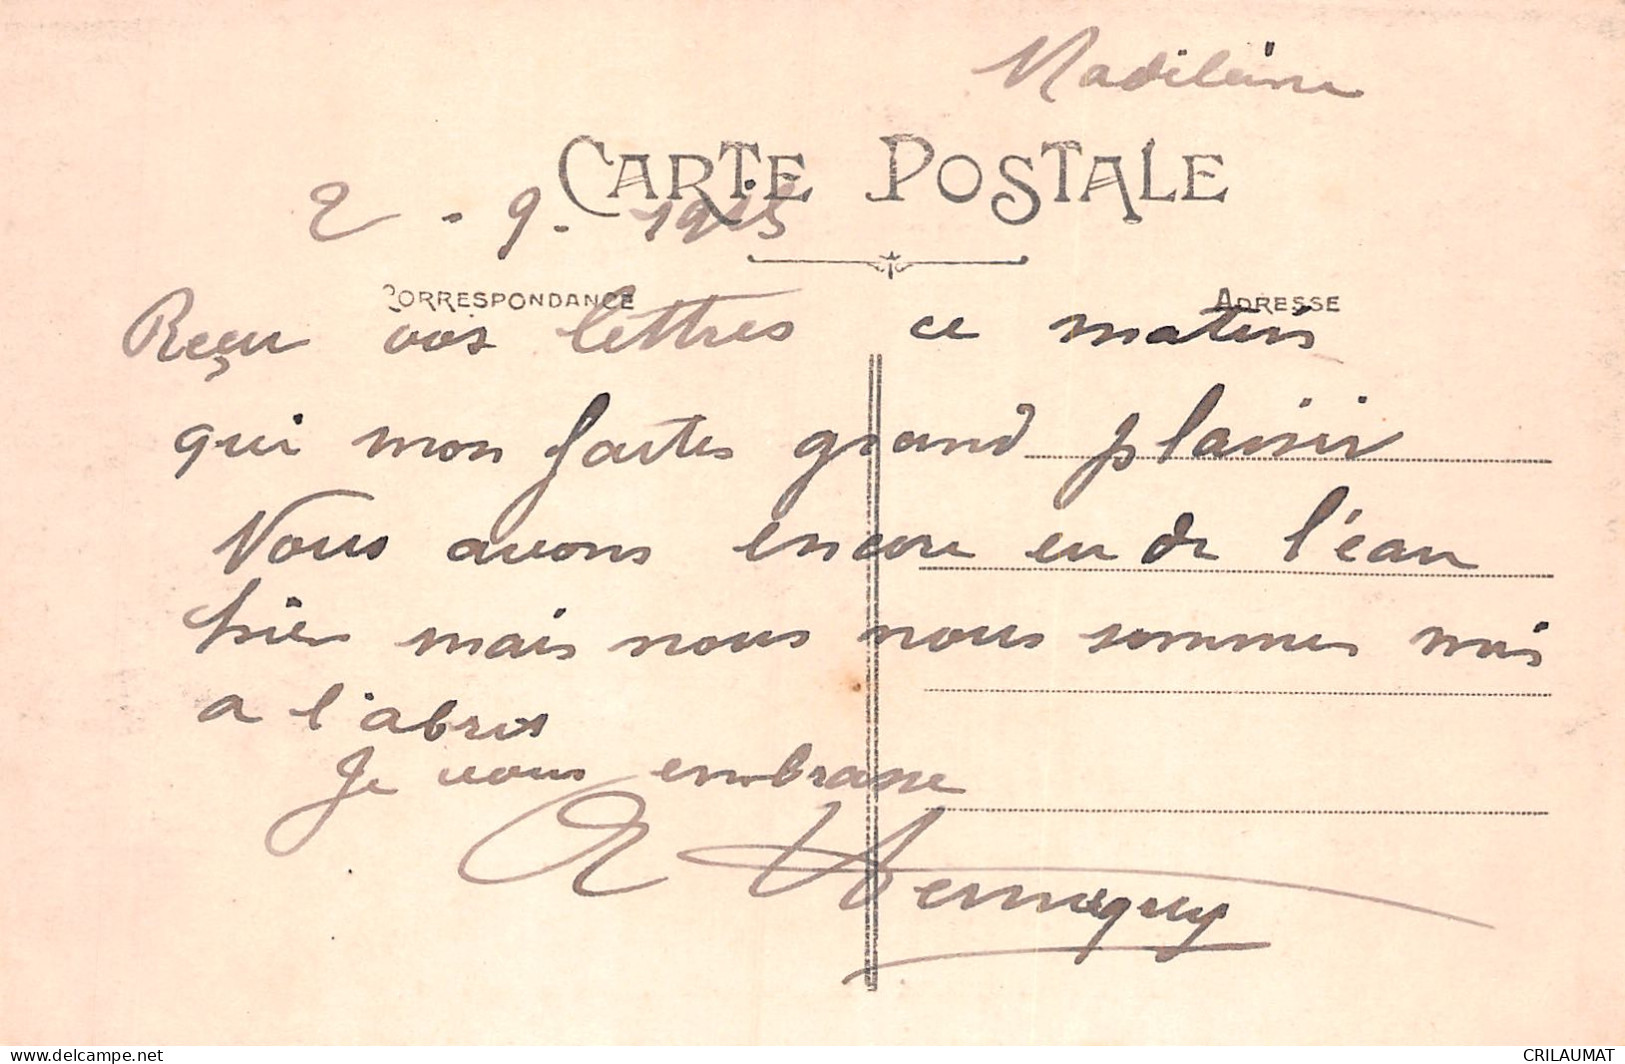 Madileine
CARTE POSTALE
2 - 9 - 1915
CORRESPONDANCE
ADRESSE
Reçu vos lettres ce matin
qui mon faites grand plaisir
Nous avons encore eu de l'eau
hier mais nous nous sommes mis
a l'abris
Je vous embrasse
delcampe.net
CRILAUMAT